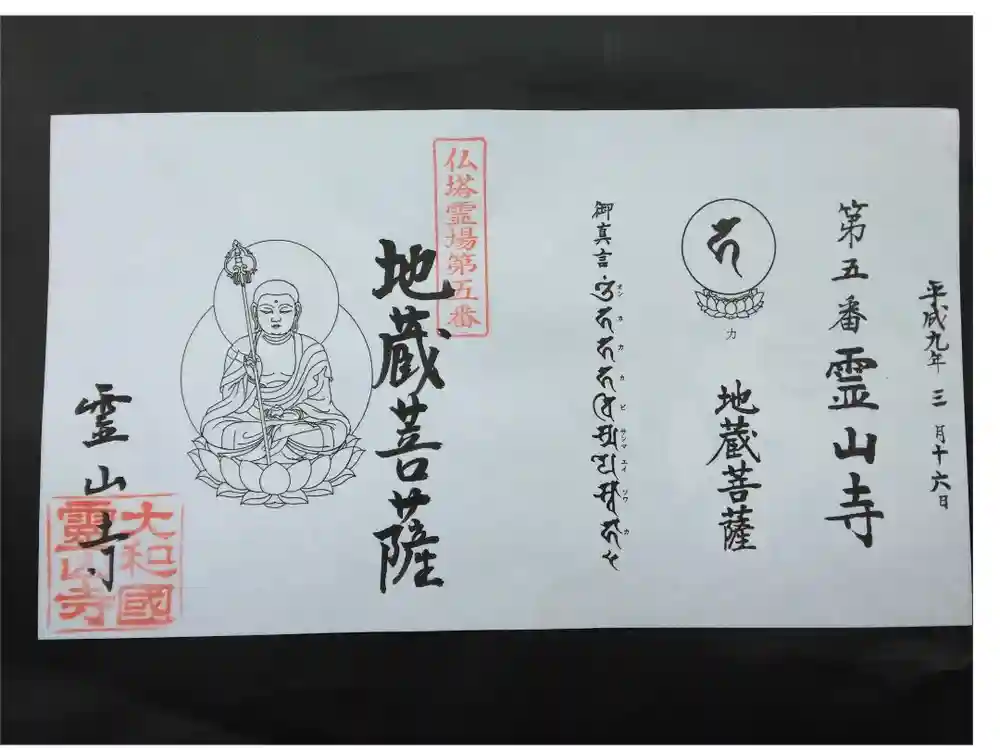 平成九年三月十六日
第五番霊山寺
カ
地蔵菩薩
御真言
オン カ カ カ ビ サンマ エイ ソワ カ
仏塔霊場第五番
地蔵菩薩
霊山寺
大和國
靈山寺